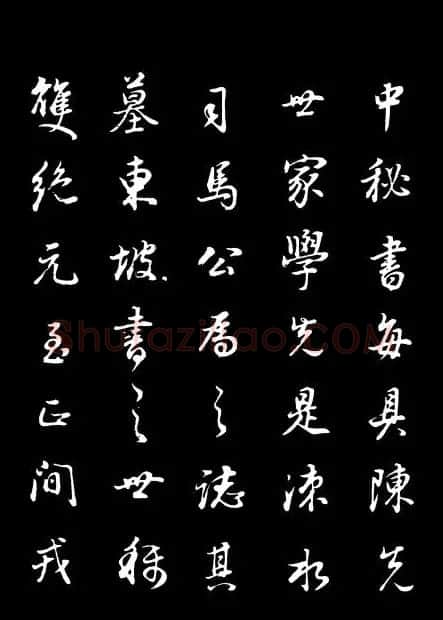 中秘書每具陳先
世家學先是涑水
司馬公爲之誌其
墓東坡書之世稱
雙絕元至正間戎